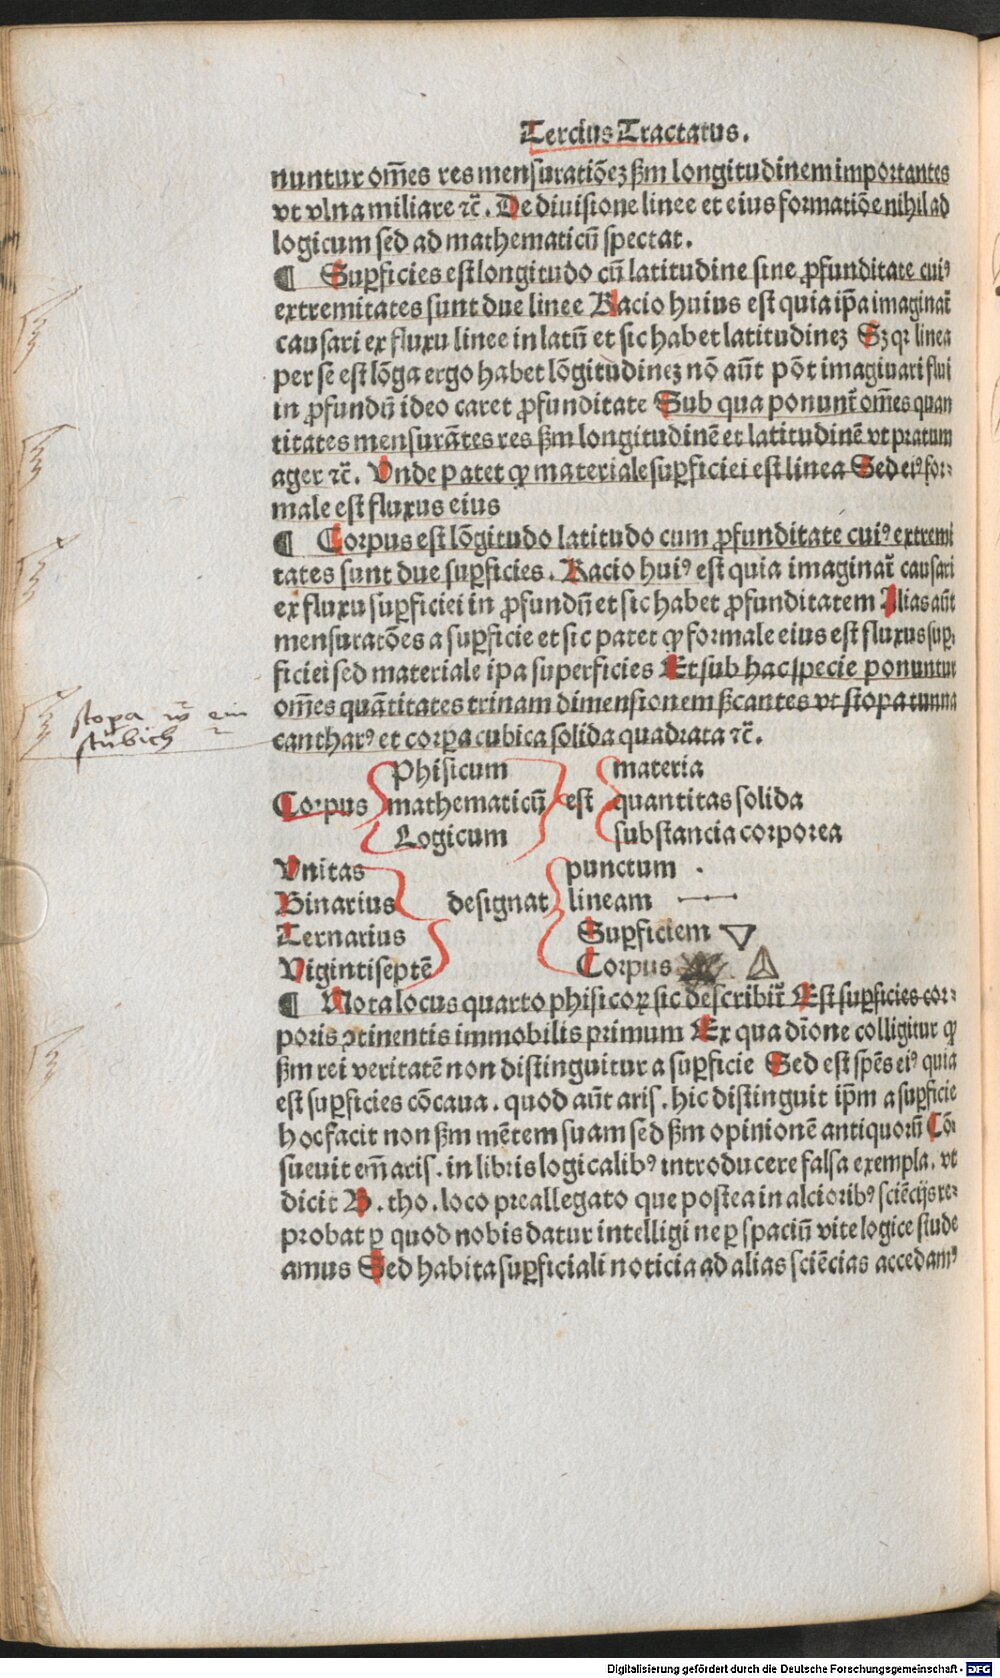 Tercius Tractatus.
nuntur om̄es res mensuratiōeʒ ẜm longitudinem importantes
vt vlna miliare ⁊c̄. De diuisione linee et eius formatiōe nihil ad
logicum sed ad mathematicū spectat.
¶ Suꝑficies est longitudo cū latitudine sine ꝓfunditate cuiꝰ
extremitates sunt due linee Racio huius est quia ip̄a imaginat̄
causari ex fluxu linee in latū et sic habet latitudineʒ Sʒ qꝛ linea
per se est lōga ergo habet lōgitudineʒ nō aūt pōt imaginari flui
in ꝓfundū ideo caret ꝓfunditate Sub qua ponunt̄ om̄es quan
titates mensurātes res ẜm longitudinē et latitudinē vt pratum
ager ⁊c̄. Vnde patet ꝙ materiale suꝑficiei est linea Sed eiꝰ for⸗
male est fluxus eius
¶ Corpus est lōgitudo latitudo cum ꝓfunditate cuiꝰ extremi
tates sunt due suꝑficies. Racio huiꝰ est quia imaginat̄ causari
ex fluxu suꝑficiei in ꝓfundū et sic habet ꝓfunditatem Alias aūt
mensuratōes a suꝑficie et sic patet ꝙ formale eius est fluxus suꝑ⸗
ficiei sed materiale ipa superficies Et sub hac specie ponuntur
om̄es quātitates trinam dimensionem ẜcantes vt stopa tunna
cantharꝰ et corpa cubica solida quadrata ⁊c̄.
stopa ein
stübich
Phisicum materia
Corpus mathematicū est quantitas solida
Logicum substancia corporea
Vnitas punctum .
Binarius designat lineam
Ternarius Suꝑficiem
Vigintiseptē Corpus
¶ Nota locus quarto phisicoꝝ sic describit̄ Est suꝑficies cor⸗
poris ↄtinentis immobilis primum Ex qua diōne colligitur ꝙ
ẜm rei veritatē non distinguitur a suꝑficie Sed est spēs eiꝰ quia
est suꝑficies cōcaua. quod aūt aris. hic distinguit ip̄m a suꝑficie
hoc facit non ẜm mētem suam sed ẜm opinionē antiquorū Cō⸗
sueuit em̄ aris. in libris logicalibꝰ introducere falsa exempla. vt
dicit B. tho. loco preallegato que postea in alcioribꝰ sciēcijs re⸗
probat ꝑ quod nobis datur intelligi ne ꝑ spaciū vite logice stude
amus Sed habita suꝑficiali noticia ad alias sciēcias accedamꝰ
Digitalisierung gefördert durch die Deutsche Forschungsgemeinschaft - DFG